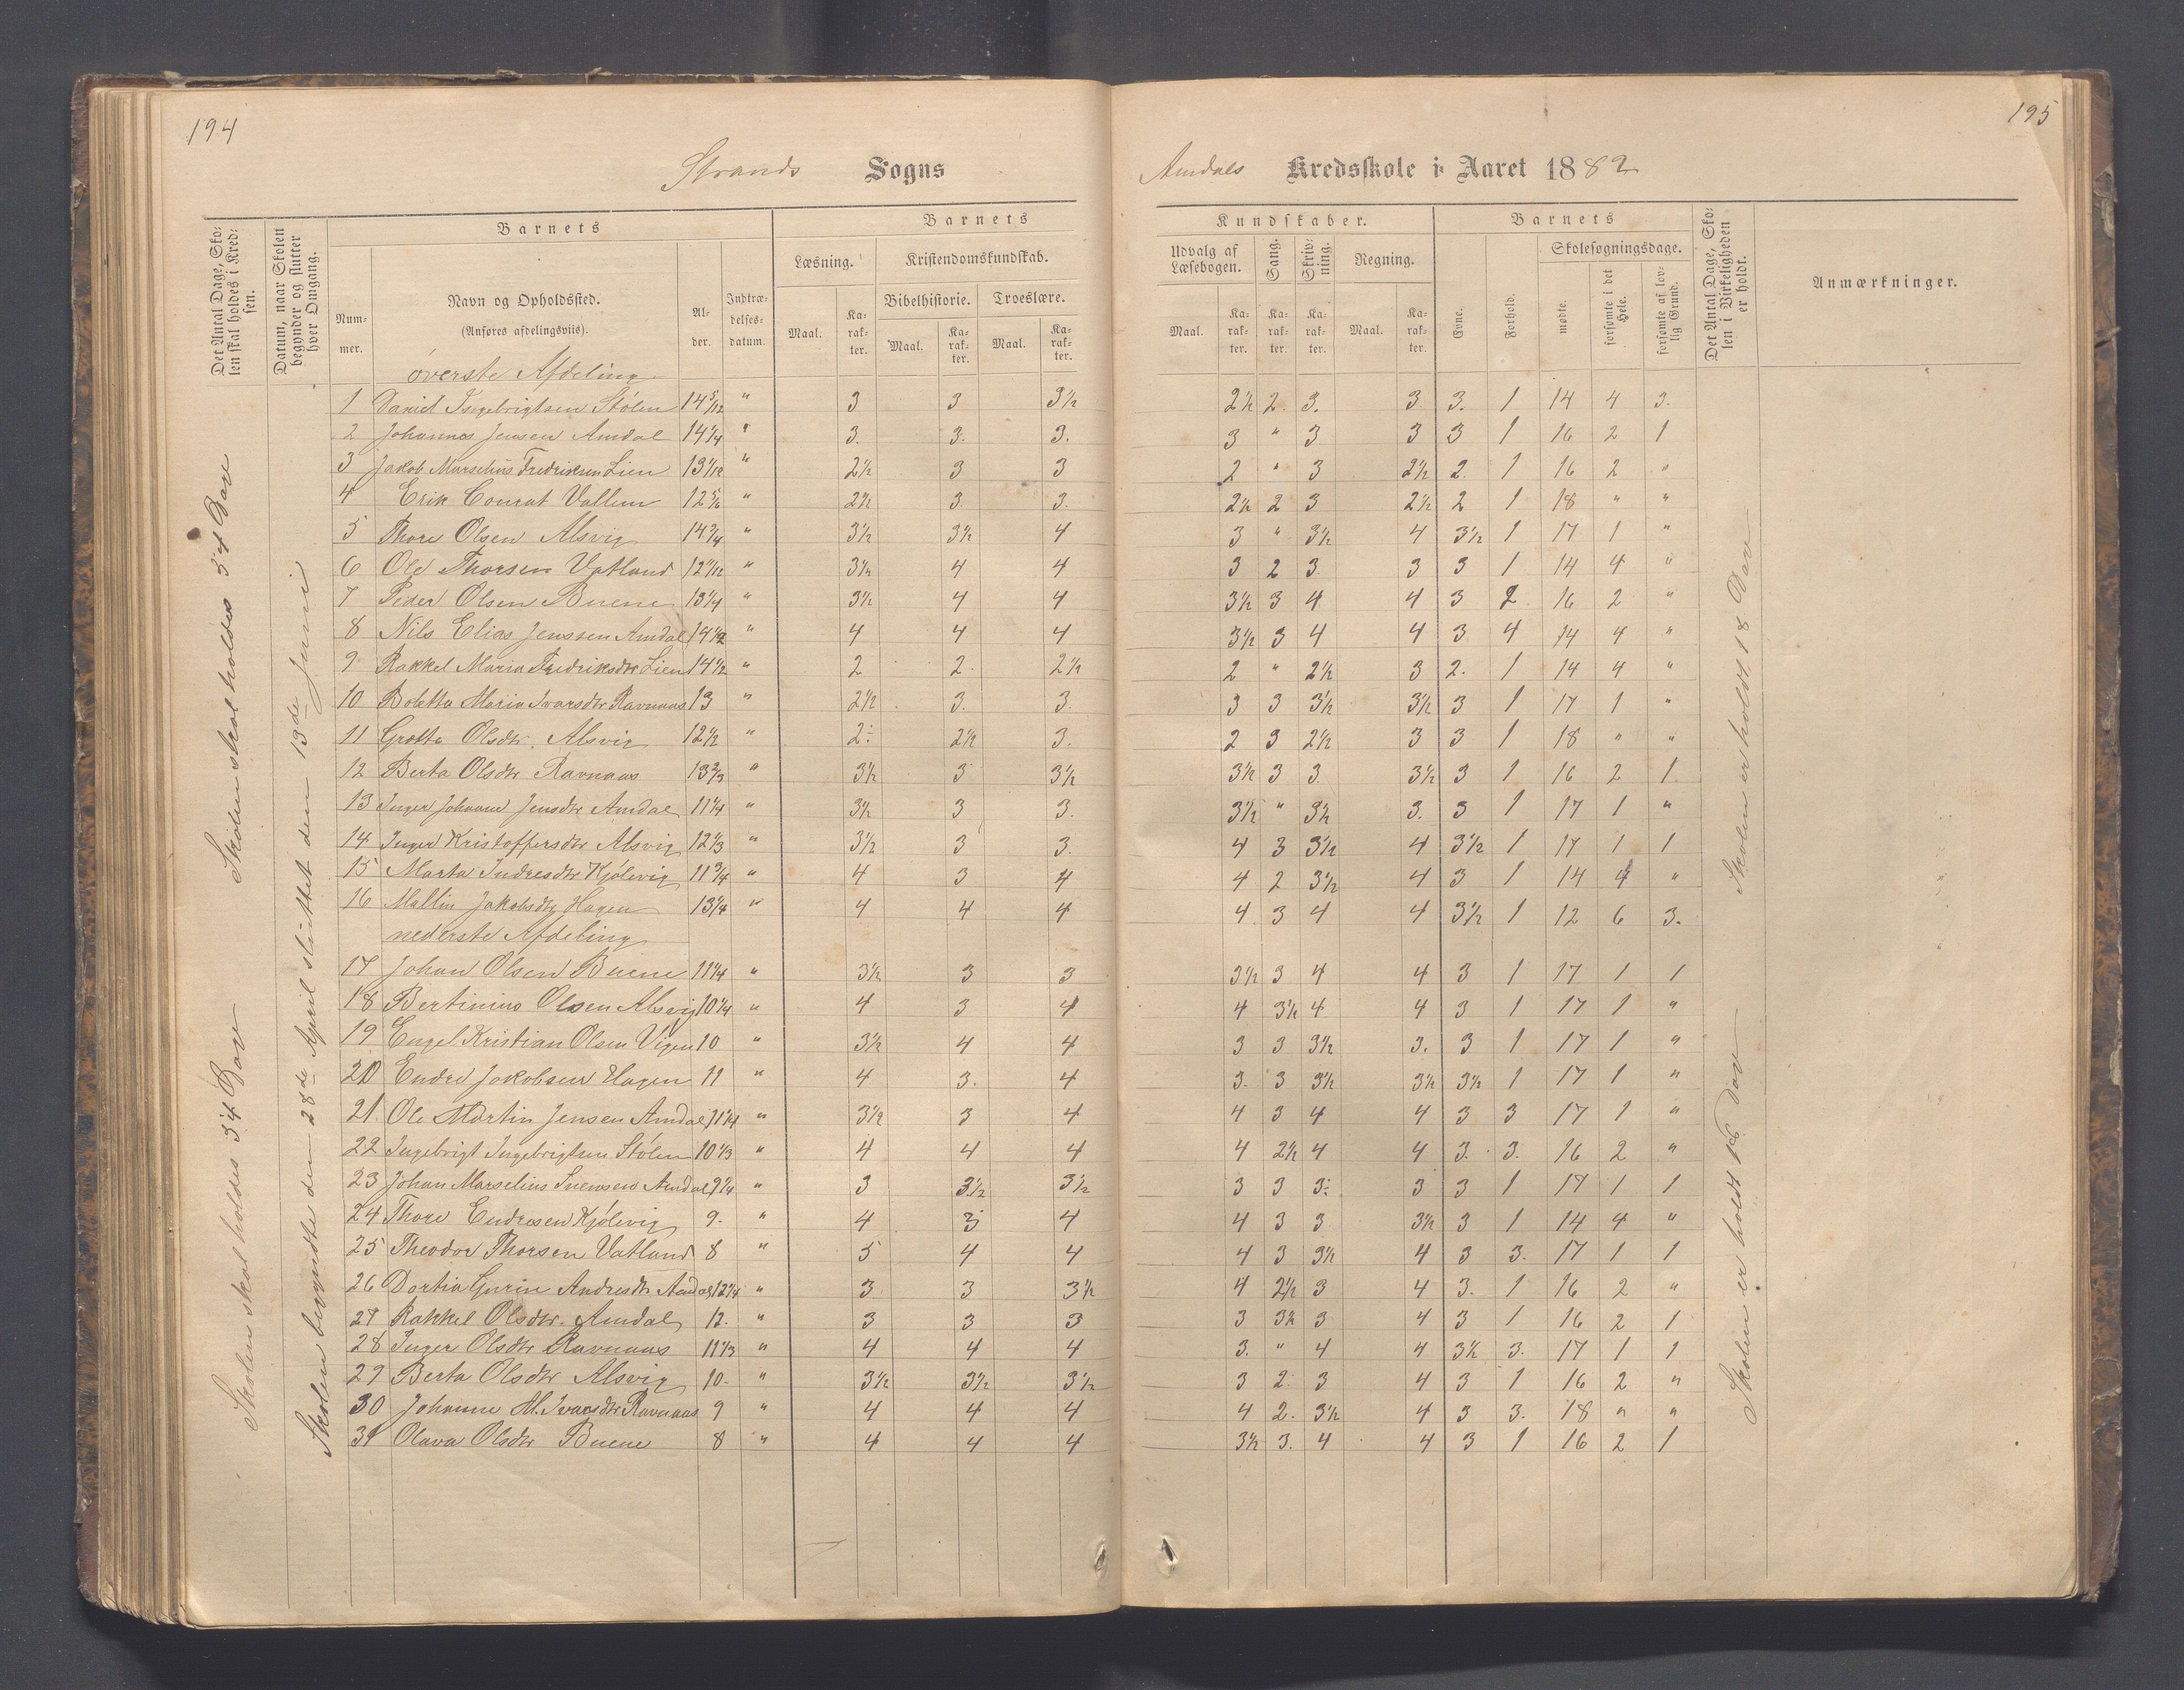 194
195
Strands Sogns
Amdals Kredsskole i Aaret 1882
Det Antal Dage, Skolen skal holdes i Kredsen.
Datum, naar Skolen begynder og slutter hver Omgang.
Barnets
Barnets
Kundskaber.
Barnets
Det Antal Dage, Skolen i Virkeligheden er holdt.
Anmærkninger.
Nummer.
Navn og Opholdssted.
(Anføres afdelingsviis).
Alder.
Indtrædelsesdatum.
Læsning.
Kristendomskundskab.
Bibelhistorie.
Troeslære.
Maal.
Karakter.
Maal.
Karakter.
Maal.
Karakter.
Udvalg af Læsebogen.
Sang.
Skrivning.
Regning.
Maal.
Karakter.
Karakter.
Karakter.
Maal.
Karakter.
Evne.
Forhold.
Skolesøgningsdage.
mødte.
forsømte i det Hele.
forsømte af lovlig Grund.
øverste Afdeling
1 Daniel Ingebrigtsen Stølen 14 5/12 " 3 3 3½ 2½ 2 3. 3 3. 1 14 4 3.
2 Johannes Jensen Amdal 14¼ " 3. 3. 3. 3 " 3 3 3 1 16 2 1
3 Jakob Marselius Fredriksen Lien 13 1/12 " 2½ 3 3 2 " 3 2½ 2. 1 16 2 "
4 Erik Conrat Vallem 12 5/6 " 2½ 3 3. 2½ 2 3 2½ 2 1 18 " "
5 Thore Olsen Alsvig 14¾ " 3½ 3½ 4 3 " 3½ 4 3½ 1 17 1 "
6 Ole Thorsen Vatland 12 11/12 " 3½ 4 4 3 2 3 3 3 1 14 4 "
7 Peder Olsen Buene 13¼ " 3½ 4 4 3½ 3 4 4 3 2 16 2 "
8 Nils Elias Jenssen Amdal 14½ " 4 4 4 3½ 3 4 4 3 4 14 4 "
9 Rakkel Maria Fredriksdtr Lien 14½ " 2 2 2½ 2 " 2½ 3 2. 1 14 4 "
10 Boletta Maria Ivarsdtr Ravnaas 13 " 2½ 3. 3. 3 3 3½ 3½ 3 1 17 1 "
11 Grotte Olsdtr. Alsvig 12½ " 2÷ 2½ 3. 2 3 2½ 3 3 1 18 " "
12 Berta Olsdtr Ravnaas 13⅔ " 3½ 3 3½ 3½ 3 3 3½ 3 1 16 2 1
13 Inger Johanne Jensdtr Amdal 11¼ " 3½ 3 3. 3½ " 3½ 3. 3 1 17 1 "
14 Inger Kristoffersdtr Alsvig 12⅓ " 3½ 3 3. 4 3 3½ 4 3½ 1 17 1 1
15 Marta Endresdtr Kjølevig 11¾ " 4 3 4 4 2 3½ 4 3 1 14 4 "
16 Mallin Jakobsdtr Hagen 13¼ " 4 4 4 4 3 4 4 3½ 1 12 6 3.
nederste Afdeling
17 Johan Olsen Buene 11¼ " 3½ 3 3 3½ 3 4 4 3 1 17 1 1
18 Bertinius Olsen Alsvig 10¼ " 4 3 4 4 3½ 4 4 3 1 17 1 "
19 Engel Kristian Olsen Vigen 10 " 3½ 4 4 3 3 3½ 3. 3 1 17 1 "
20 Endre Jakobsen Hagen 11 " 4 3. 4 3. 3 3½ 3½ 3½ 1 17 1 "
21. Ole Martin Jensen Amdal 11¼ " 3½ 3 4 4 3 4 4 3 3 17 1 "
22 Ingebrigt Ingebrigtsen Stølen 10⅓ " 4 4 4 4 2½ 4 4 3. 3. 16 2 "
23 Johan Marselius Svensen Amdal 9¼ " 3 3½ 3½ 3 3 3÷ 3 3 1 17 1 1
24 Thore Endresen Kjølevig 9. " 4 3 4 4 3 3 3½ 3 1 14 4 "
25 Theodor Thorsen Vatland 8 " 5 4 4 4 3 3½ 4 3 3. 17 1 1
26 Dortia Gurine Andresdtr Amdal 12¼ " 3 3 3½ 4 2½ 3 4 3. 1 16 2 "
27 Rakkel Olsdtr. Amdal 12. " 3 3 3 3 3½ 3 4 3 1 16 2 1
28 Inger Olsdtr Ravnaas 11⅓ " 4 4 4 3. " 4 4 3½ 3. 17 1 1
29 Berta Olsdtr Alsvig 10. " 3½ 3½ 3½ 3 2. 3 4 3 1 16 2 "
30 Johanne M. Ivarsdtr Ravnaas 9 " 4 4 4 4 2. 3½ 4 3 3. 18 " "
31 Olava Olsdtr Buene 8 " 4 4 4 3½ 3. 4 4 3 1 16 2 1
Skolen skal holdes 34 Dage
Skolen skal holdes 34 Dage
Skolen begyndte den 28de April sluttet den 13de Juni
Skolen er holdt 18 Dage
Skolen er holdt 18 Dage